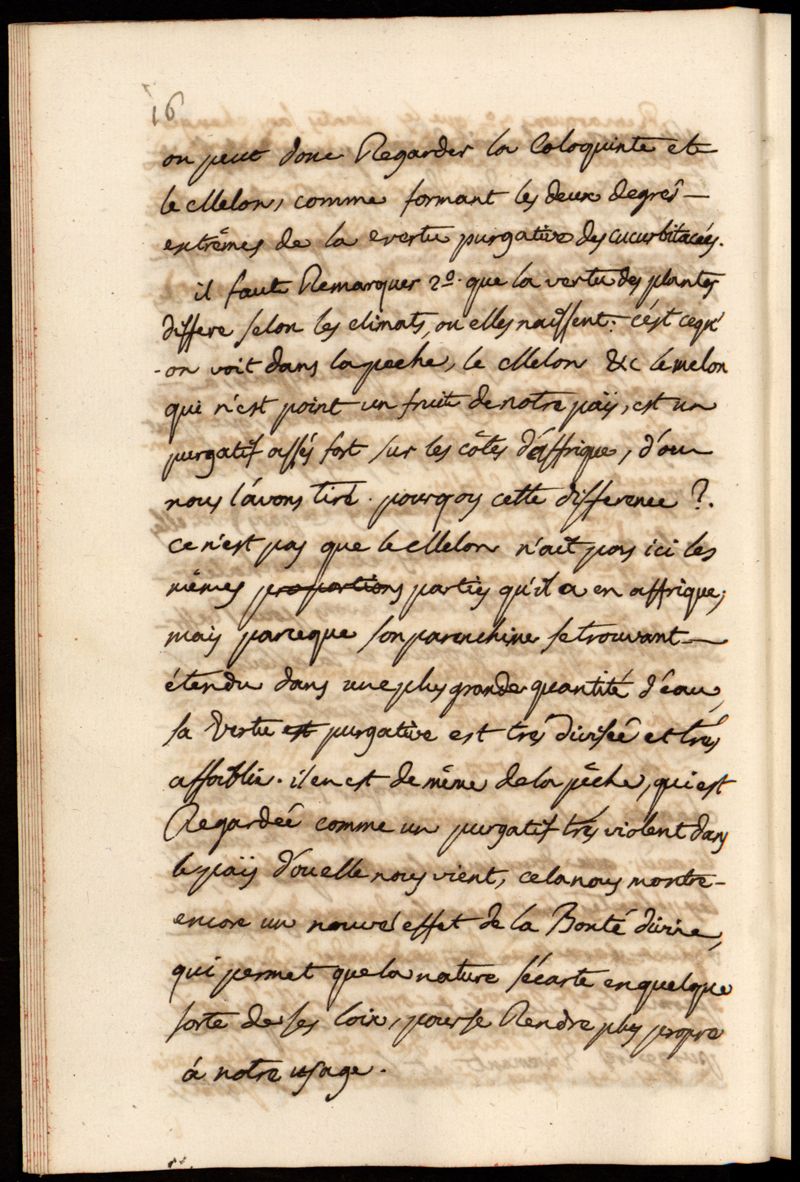 16
on peut donc Regarder la Coloquinte et
le Melon, comme formant les deux degrés
extrêmes de la vertu purgative des cucurbitacées.
il faut Remarquer 2º. que la vertu des plantes
differe selon les climats, ou elles naissent: c'ést cequ'
-on voit dans la peche, le Melon &c le melon
qui n'est point un fruit de notre païs, est un
purgatif assés fort sur les côtes d'affrique, d'ou
nous l'avons tiré. pourqoy cette difference ?.
ce n'est pas que le Melon n'ait pas ici les
mêmes proportions parties qu'il a en affrique,
mais parceque son parenchime se trouvant
étendu dans une plus grande quantité d'éau,
sa Vertu est purgative est trés divisée et trés
affoiblie. il en est de même de la pêche, qui est
Regardée comme un purgatif trés violent dans
le païs d'ou elle nous vient, cela nous montre
encore un nouvel effet de la Bonté divine,
qui permet que la nature s'écarte en quelque
sorte de ses loix, pour se Rendre plus propre
á notre usage.